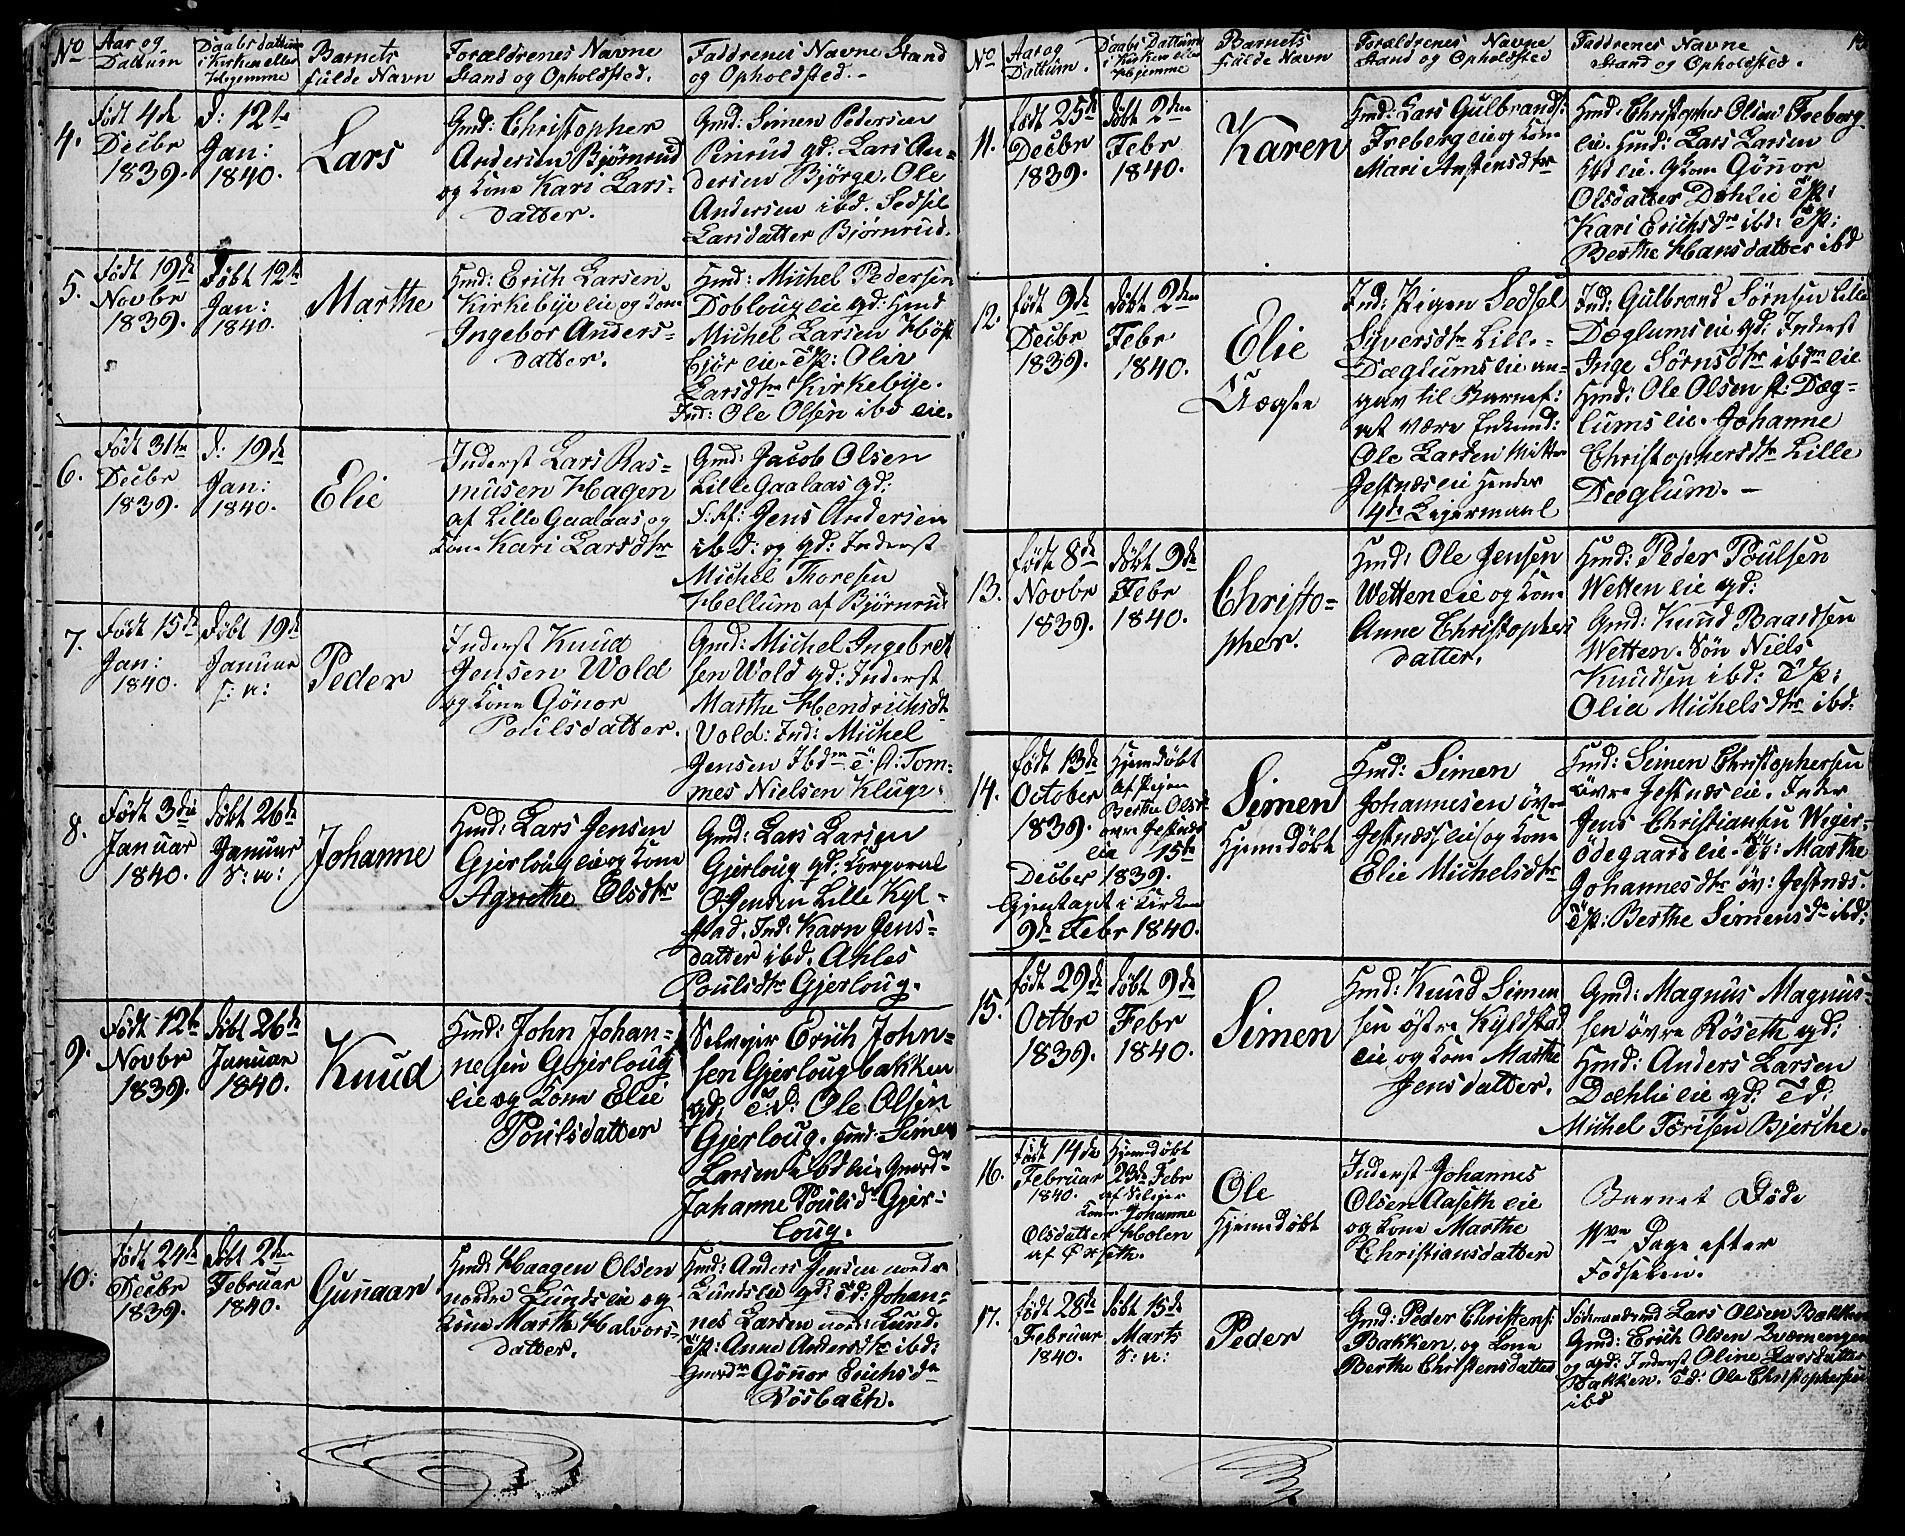 No
Aar og
Dattum
Daabs dattum
i Kirken eller
Hjemme
Barnets
fulde Navn
Forældrenes Navne
Stand og Opholdsted.
Faddrenes Navne Stand
og Opholdsted.
4.
født 4de
Decbr
1839.
d: 12te
Jan:
1840.
Lars
Gmd: Christopher
Andersen Bjørnrud
og Kone Kari Lars-
datter.
Gmd: Simen Pedersen
Pinrud gd: Lars An-
dersen Bjørge. Ole
Andersen ibd. Sedsel
Larsdatter Bjørnrud.
5.
Født 19de
Novbr
1839.
døbt 12te
Jan:
1840.
Marthe
Hmd: Erich Larsen
Kirkebye eie og Kone
Ingebor Anders-
datter.
Hmd: Michel Pedersen
Doblougeie gd: Hmd
Michel Larsen Høst
bjør eie. T.P: Olia
Larsdtr Kirkebye.
Ind: Ole Olsen ibd eie.
6.
Født 31te
Decbr
1839.
d: 19de
Jan:
1840.
Elie
Inderst Lars Ras-
musen Hagen
af Lille Gaalaas og
Kone Kari Larsdtr
Gmd: Jacob Olsen
Lille Gaalaas gd:
Jens Andersen
ibd: og gd: Inderst
Michel Thoresen
Hellum af Bjørnrud
7.
Født 15de
Jan:
1840.
døbt 19de
Januar
s: n:
Peder
Inderst Knud
Jensen Wold
og Kone Gønor
Poulsdatter.
Gmd: Michel Ingebret
sen Wold gd: Inderst
Marthe Hendrichsdtr
Vold: Ind: Michel
Jensen Ibdm T: st: Tom-
mes Nielsen Kluge.
8.
Født 3die
Januar
1840.
døbt 26de
Januar
S: n:
Johanne
Hmd: Lars Jensen
Gjerlougeie og Kone
Agnethe Elsdtr
Gmd: Lars Larsen
Gjerloug gd: Korporal
O Jensen Lille Kyl-
stad. Ind: Karn Jens-
datter ibd. Ahles
Poulsdtr Gjerloug.
9.
Født 12te
Novbr
1839.
døbt 26de
Januar
1840.
Knud
Hmd: John Johan-
nesen Gjerloug
eie og Kone Elie
Poulsdatter
Selveier Erich John-
sen Gjerlougbakken
gd. T.D: Ole Olsen
Gjerloug. Hmd: Simen
Larsen ibd eie Gmrd
Johanne Poulsdr Gjer-
loug.
10.
født 24de
Decbr
1839.
døbt 2den
Februar
1840.
Gunaar
Hmd: Haagen Olsen
nordre Lundseie og
Kone Marth Halvors-
datter.
Hmd: Anders Jensen nordre
Lundseie gd: T.D: Johan-
nes Larsen nord: Lund.
Anne Andersdtr ibd:
Gmrdn Gønor Erichsdr
Røsbach.
No
Aar og
Dattum.
Daabs Dattum
i Kirken eller
Hjemme
Barnets
fulde Navn
Forældrenes Navne
Stand og Opholdsted
Faddrenes Navne
Stand og Opholdsted.
11.
født 25de
Decbr
1839.
døbt 2den
Febr
1840.
Karen
Hmd: Lars Gulbrands:
Freberg eie og Kone
Mari Anstensdtr
Hmd: Christopher Olsen Freberg-
eie. Hmd: Lars Larsen
ibd eie. Gønor
Olsdatter Dehlie T.P:
Kari Erichsdr ibd: T.P:
Berthe Hansdatter ibd
12.
født 9de
Decbr
1839.
døbt 2den
Febr
1840.
Elie
Uægte
Ind: Pigen Sedsel
Syversdtr Lille-
Dæglumseie an-
gav til Barnef:
at være Enkemd:
Ole Larsen
Jessnæseie Hendes
4de Leiermaal
Ind: Gulbrand Sørnsen Lille
Dæglumseie gd: Inderst
Inge Sørnsdtr ibdm eie
Hmd: Ole Olsen st: Dæg-
lumseie. Johanne
Christophersdtr Lille
Dæglum. –
13.
født 8de
Novbr
1839.
døbt 9de
Febr
1840.
Christo-
pher.
Hmd: Ole Jensen
Wetteneie og Kone
Anne Christophers
datter.
Hmd: Peder Poulsen
Wetten eie gd:
Gmd: Knud Baardsen
Wetten. Søn Niels
Knudsen ibd: T.P:
Olia Michelsdtr ibd:
14.
født 13de
October
1839.
Hjemdøbt
af Pigen
Berthe Olsdr
øvre Jessnæs
eie 15te
Decber 1839.
Gjentaget i Kirken
9de Febr 1840.
Simen
Hjemdøbt
Hmd: Simen
Johannesen øvre
Jessnæs eie og Kone
Elie Michelsdtr
Hmd: Simen Christophersen
øvre Jessnæs eie. Inder
Jens Christiansen Wiger-
ødegaardeie. Marthe
Johannesdtr øv: Jessnæs.
T.P: Berthe Simensdr ibd:
15.
født 29de
Octbr
1839.
døbt 9de
Febr
1840.
Simen
Hmd: Knud Simen
sen østre Kyldstad
eie og Kone Marthe
Jensdatter.
Gmd: Magnus Magnus-
sen øvre Røseth gd:
Hmd: Anders Larsen
Dæhlie eie gd: T.d:
Michel Torisen Bjerche.
16.
født 14de
Februar
1840.
Hjemdøbt
23de Febr
af Selvejer
Konen Johanne
Olsdatter Holen
af Ørseth.
Ole
Hjemdøbt
Inderst Johannes
Olsen Aaseth eie
og Kone Marthe
Christiansdatter
Barnet Døde
Dage efter
Fødselen.
17.
født 28de
Februar
1840.
døbt 15de
Marts
S: n:
Peder
Gmd: Peder Christens:
Bakken, og Kone
Berthe Christensdatter
Lars Olsen Bakken
Gmd: Erich Olsen Qværnengen
og gd: Inderst Oline Larsdatter
Bakken. T.d: Ole Christophersen
ibd